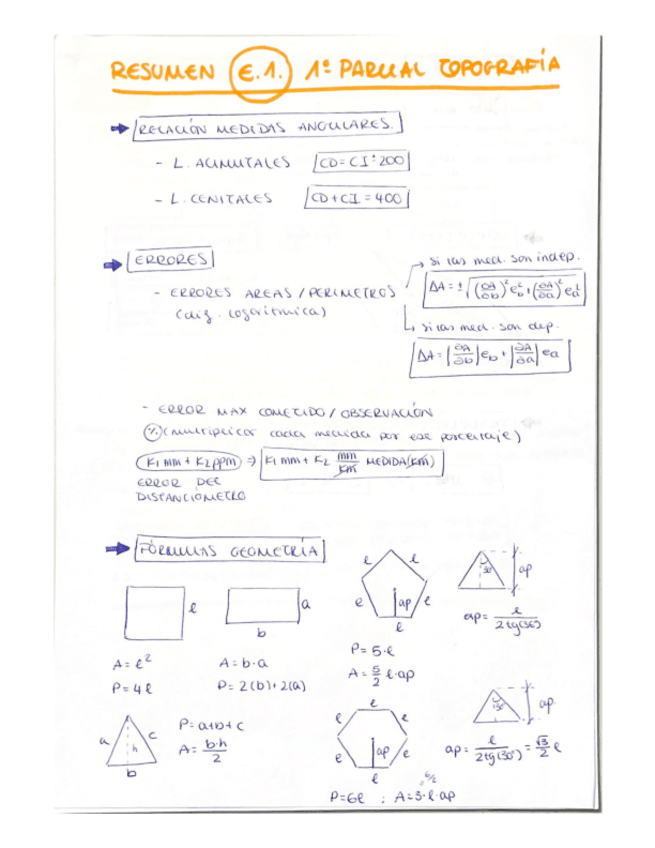 RESUMEN E.1. 1º PARCIAL TOPOGRAFÍA
RELACIÓN MEDIDAS ANGULARES.
- L. ACIMUTALES CD = CI ± 200
- L. CENITALES CD + CI = 400
ERRORES
- ERRORES AREAS / PERIMETROS
(dif. logarítmica)
si las med. son indep.
ΔA = ± √((∂A/∂b)² e_b² + (∂A/∂a)² e_a²)
si las med. son dep.
ΔA = |∂A/∂b| e_b + |∂A/∂a| e_a
- ERROR MAX COMETIDO / OBSERVACIÓN
% (multiplicar cada medida por ese porcentaje)
K1 mm + K2 ppm ⇒ K1 mm + K2 mm/km MEDIDA (km)
ERROR DEL
DISTANCIÓMETRO
FÓRMULAS GEOMETRÍA
l
A = l²
P = 4l
a
b
A = b·a
P = 2(b) + 2(a)
l
l
l
l
ap
l
P = 5·l
A = 5/2 l·ap
36°
ap
ap = l / 2tg(36)
a
c
h
b
P = a+b+c
A = b·h / 2
l
l
l
l
l
ap
l
6/2
P = 6l ; A = 3·l·ap
30°
ap
ap = l / 2tg(30°) = √3/2 l